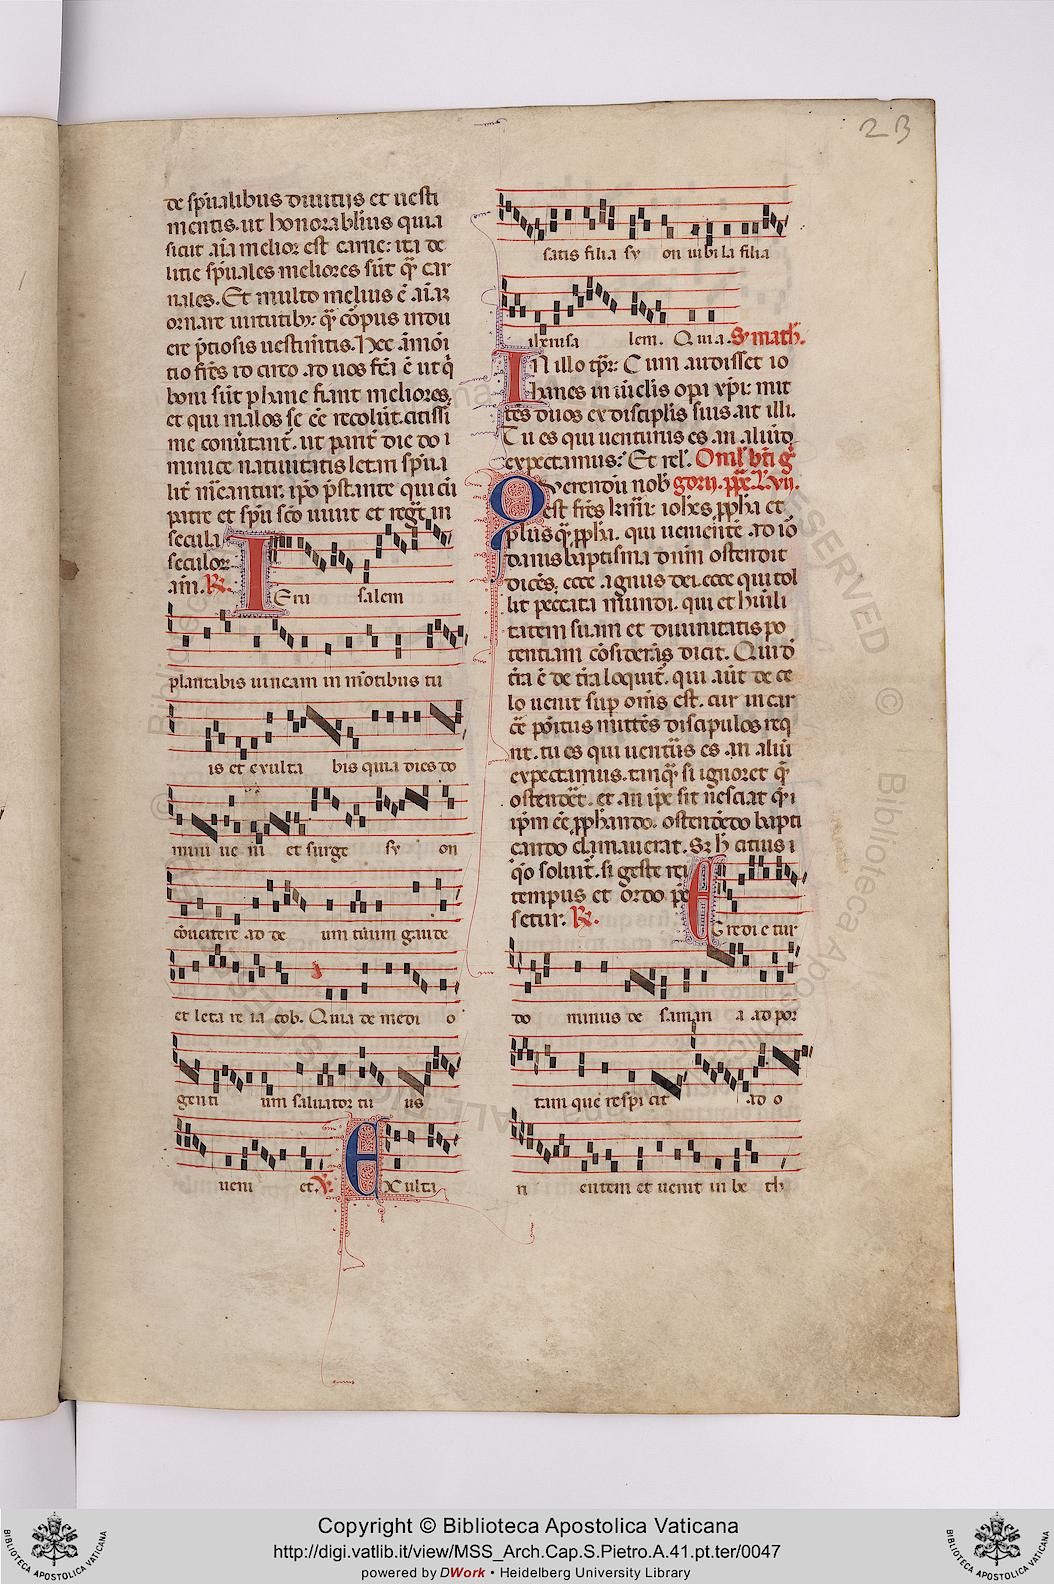 2B
de sp̃ualibus diuitijs et uesti
mentis. ut honorabl̃ius quia
sicut aĩa melior est carne: ita de
litie sp̃uales meliores sũt q̃ car
nales. Et multo melius ẽ aĩaȝ
ornare uirtutibꝫ: q̃ cõpus indu
ere p̃tiosis uestim̃tis. Hec
tio fr̃es
boni sũt p hanc fiant meliores,
et qui malos se eẽ recolũt. citissi
me conũtant̃. ut parit̃ die do i
minice natiuitatis letari sp̃ua
lit̃ m̃eantur. ip̃o p̃stante qui cũ
patre et sp̃u sc̃o uiuit et regt̃ in
secula
seculoꝝ
am̃. ℟.
IEru salem
plantabis uineam in mõtibus tu
is et exulta bis quia dies do
mini ue ni et surge sy on
cõuertere ad de um tuum gaude
et leta re ia cob. Quia de medi o
genti um saluator tu us
ueni et. ℣. EXulta
satis filia sy on iubi la filia
iherusa lem. Quia. S. math̃.
IN illo tp̃r: Cum audisset io
hanes in uĩclis opa xp̃i: mit
tẽs duos ex disciplis suis ait illi.
Tu es qui uenturus es an aliũd
expectamus: Et rel̃. Oml̃ bt̃i g̃
gorij. pp̃e
est fr̃es
plus q̃ ꝓph̃a. qui ueniente ad iõ
danis baptisma dñm ostendit
dicẽs, ecce agnus dei. ecce qui tol
lit peccata mũndi. qui et humili
tatem suam et diuinitatis po
tentiam cõsiderãs dicit. Qui d̃
t̃ra ẽ de t̃ra loquit̃. qui aũt de ce
lo uenit sup om̃s est. cur in car
cẽ põitus mittẽs discipulos req
rit. tu es qui uentũs es an aliũ
expectamus. tanq̃ si ignoret q̃
ostendẽt. et an ip̃e sit nesciat q̃i
ip̃m eẽ ꝓph̃ando. ostendẽdo bapti
çando clamauerat. Sꝫ h̃ citius i
q̃o soluit̃. si geste rei
tempus et ordo pẽ
setur. ℟.
EGredi e tur
do minus de samari a ad por
tam que respi cit ad o
ri entem et uenit in be th
Copyright © Biblioteca Apostolica Vaticana
http://digi.vatlib.it/view/MSS_Arch.Cap.S.Pietro.A.41.pt.ter/0047
powered by DWork • Heidelberg University Library
BIBLIOTECA APOSTOLICA VATICANA
BIBLIOTECA APOSTOLICA VATICANA